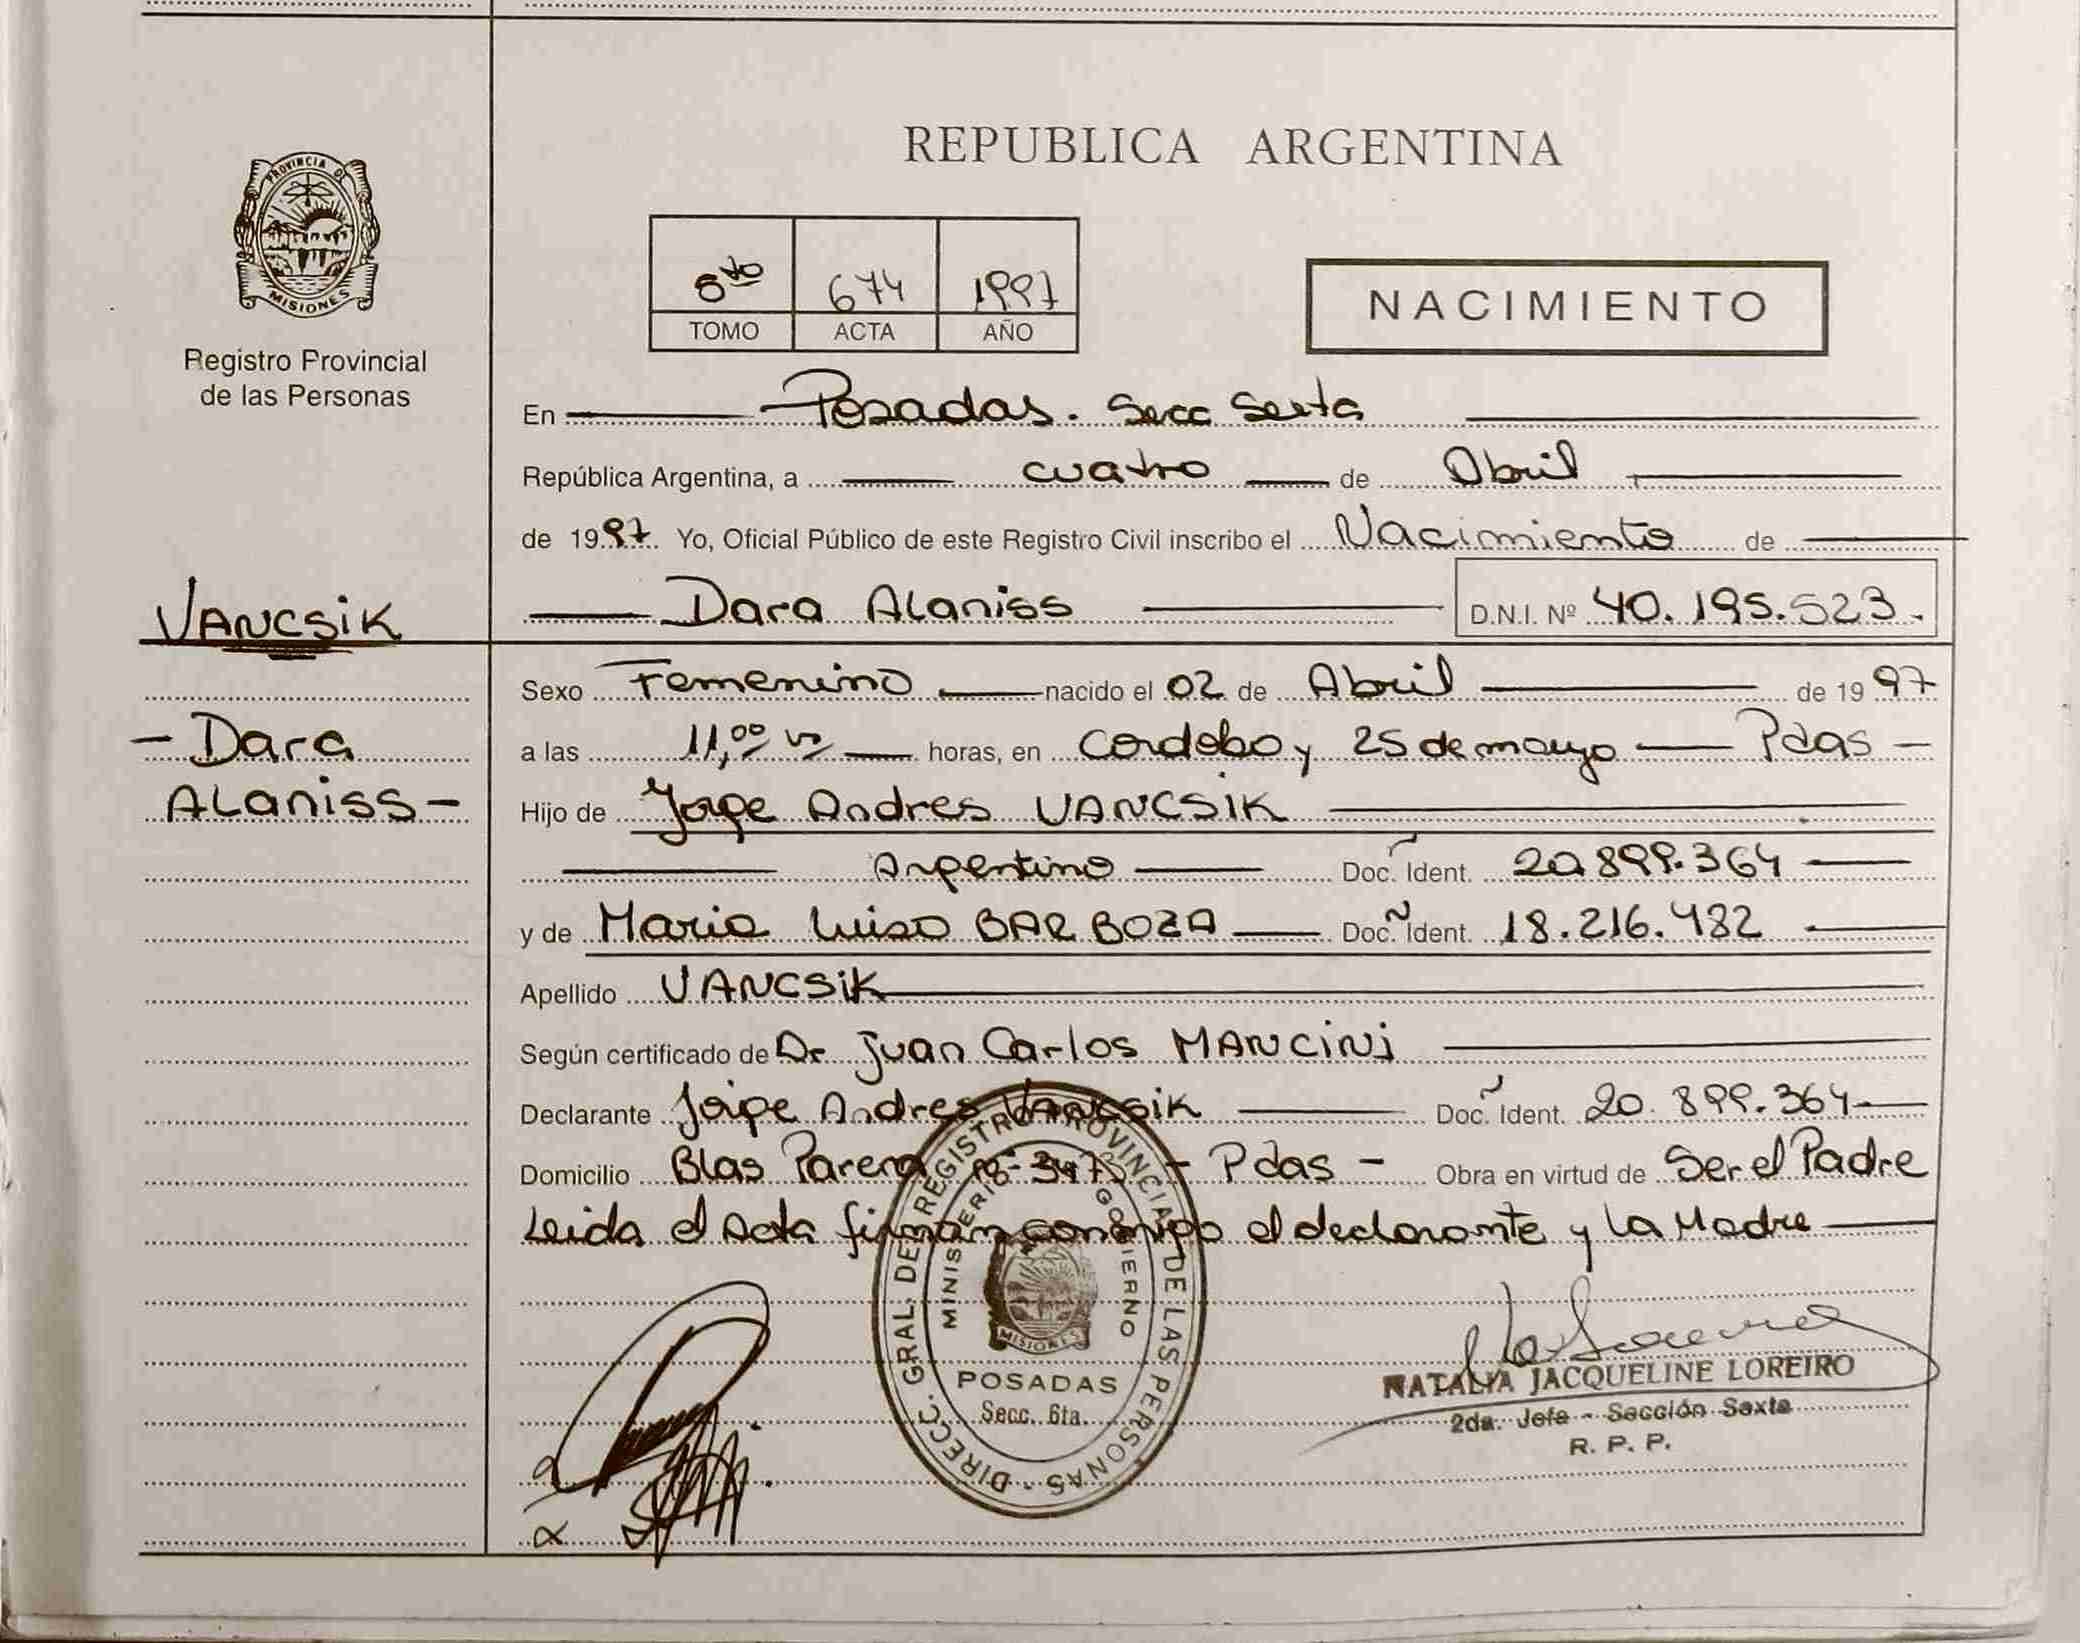 PROVINCIA DE
MISIONES
Registro Provincial
de las Personas
VANCSiK
- Dara
ALaniss -
REPUBLICA ARGENTINA
TOMO 674 ACTA 1997 AÑO
NACIMIENTO
En Posadas. Secc Sexta
República Argentina, a cuatro de Abril
de 1997. Yo, Oficial Público de este Registro Civil inscribo el Nacimiento de
Dara ALaniss D.N.I. Nº 40.195.523.
Sexo Femenino nacido el 02 de Abril de 1997
a las 11,00 horas, en Cordoba y 25 de mayo Pdas -
Hijo de Jorge Andres VANCSIK
Argentino Doc. Ident. 20.899.364
y de Maria Luisa BARBOZA Doc. Ident. 18.216.482
Apellido VANCSiK
Según certificado de Dr Juan Carlos MANCiNi
Declarante Jorge Andres VANCSik Doc. Ident. 20.899.364
Domicilio BLas Parera - Pdas - Obra en virtud de Ser el Padre
Leida el Acta firman conmigo el declarante y La Madre
DIRECC. GRAL. DE REGISTRO PROVINCIAL DE LAS PERSONAS
MINISTERIO GOBIERNO
MISIONES
POSADAS
Secc. 6ta.
NATALIA JACQUELINE LOREIRO
2da. Jefa - Sección Sexta
R. P. P.